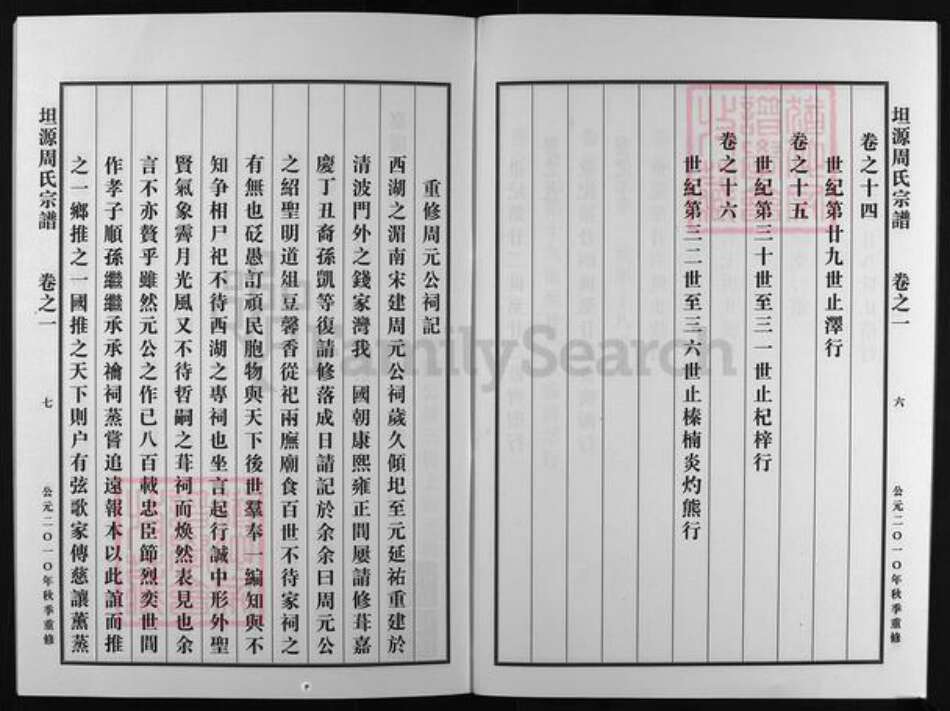 坦源周氏宗譜
卷之一
六
公元二〇一〇年秋季重修
卷之十四
世紀第廿九世止澤行
卷之十五
世紀第三十世至三一世止杞梓行
卷之十六
世紀第三二世至三六世止榛楠炎灼熊行
重修周元公祠記
西湖之湄南宋建周元公祠歲久傾圮至元延祐重建於
清波門外之錢家灣我 國朝康熙雍正間屢請修葺嘉
慶丁丑裔孫凱等復請修落成日請記於余余曰周元公
之紹聖明道俎豆馨香從祀兩廡廟食百世不待家祠之
有無也砭愚訂頑民胞物與天下後世羣奉一編知與不
知争相尸祀不待西湖之專祠也坐言起行誠中形外聖
賢氣象霽月光風又不待哲嗣之葺祠而煥然表見也余
言不亦贅乎雖然元公之作已八百載忠臣節烈奕世間
作孝子順孫繼繼承承禴祠蒸嘗追遠報本以此誼而推
之一鄉推之一國推之天下則户有弦歌家傳慈讓薰蒸
坦源周氏宗譜
卷之一
七
公元二〇一〇年秋季重修
FamilySearch